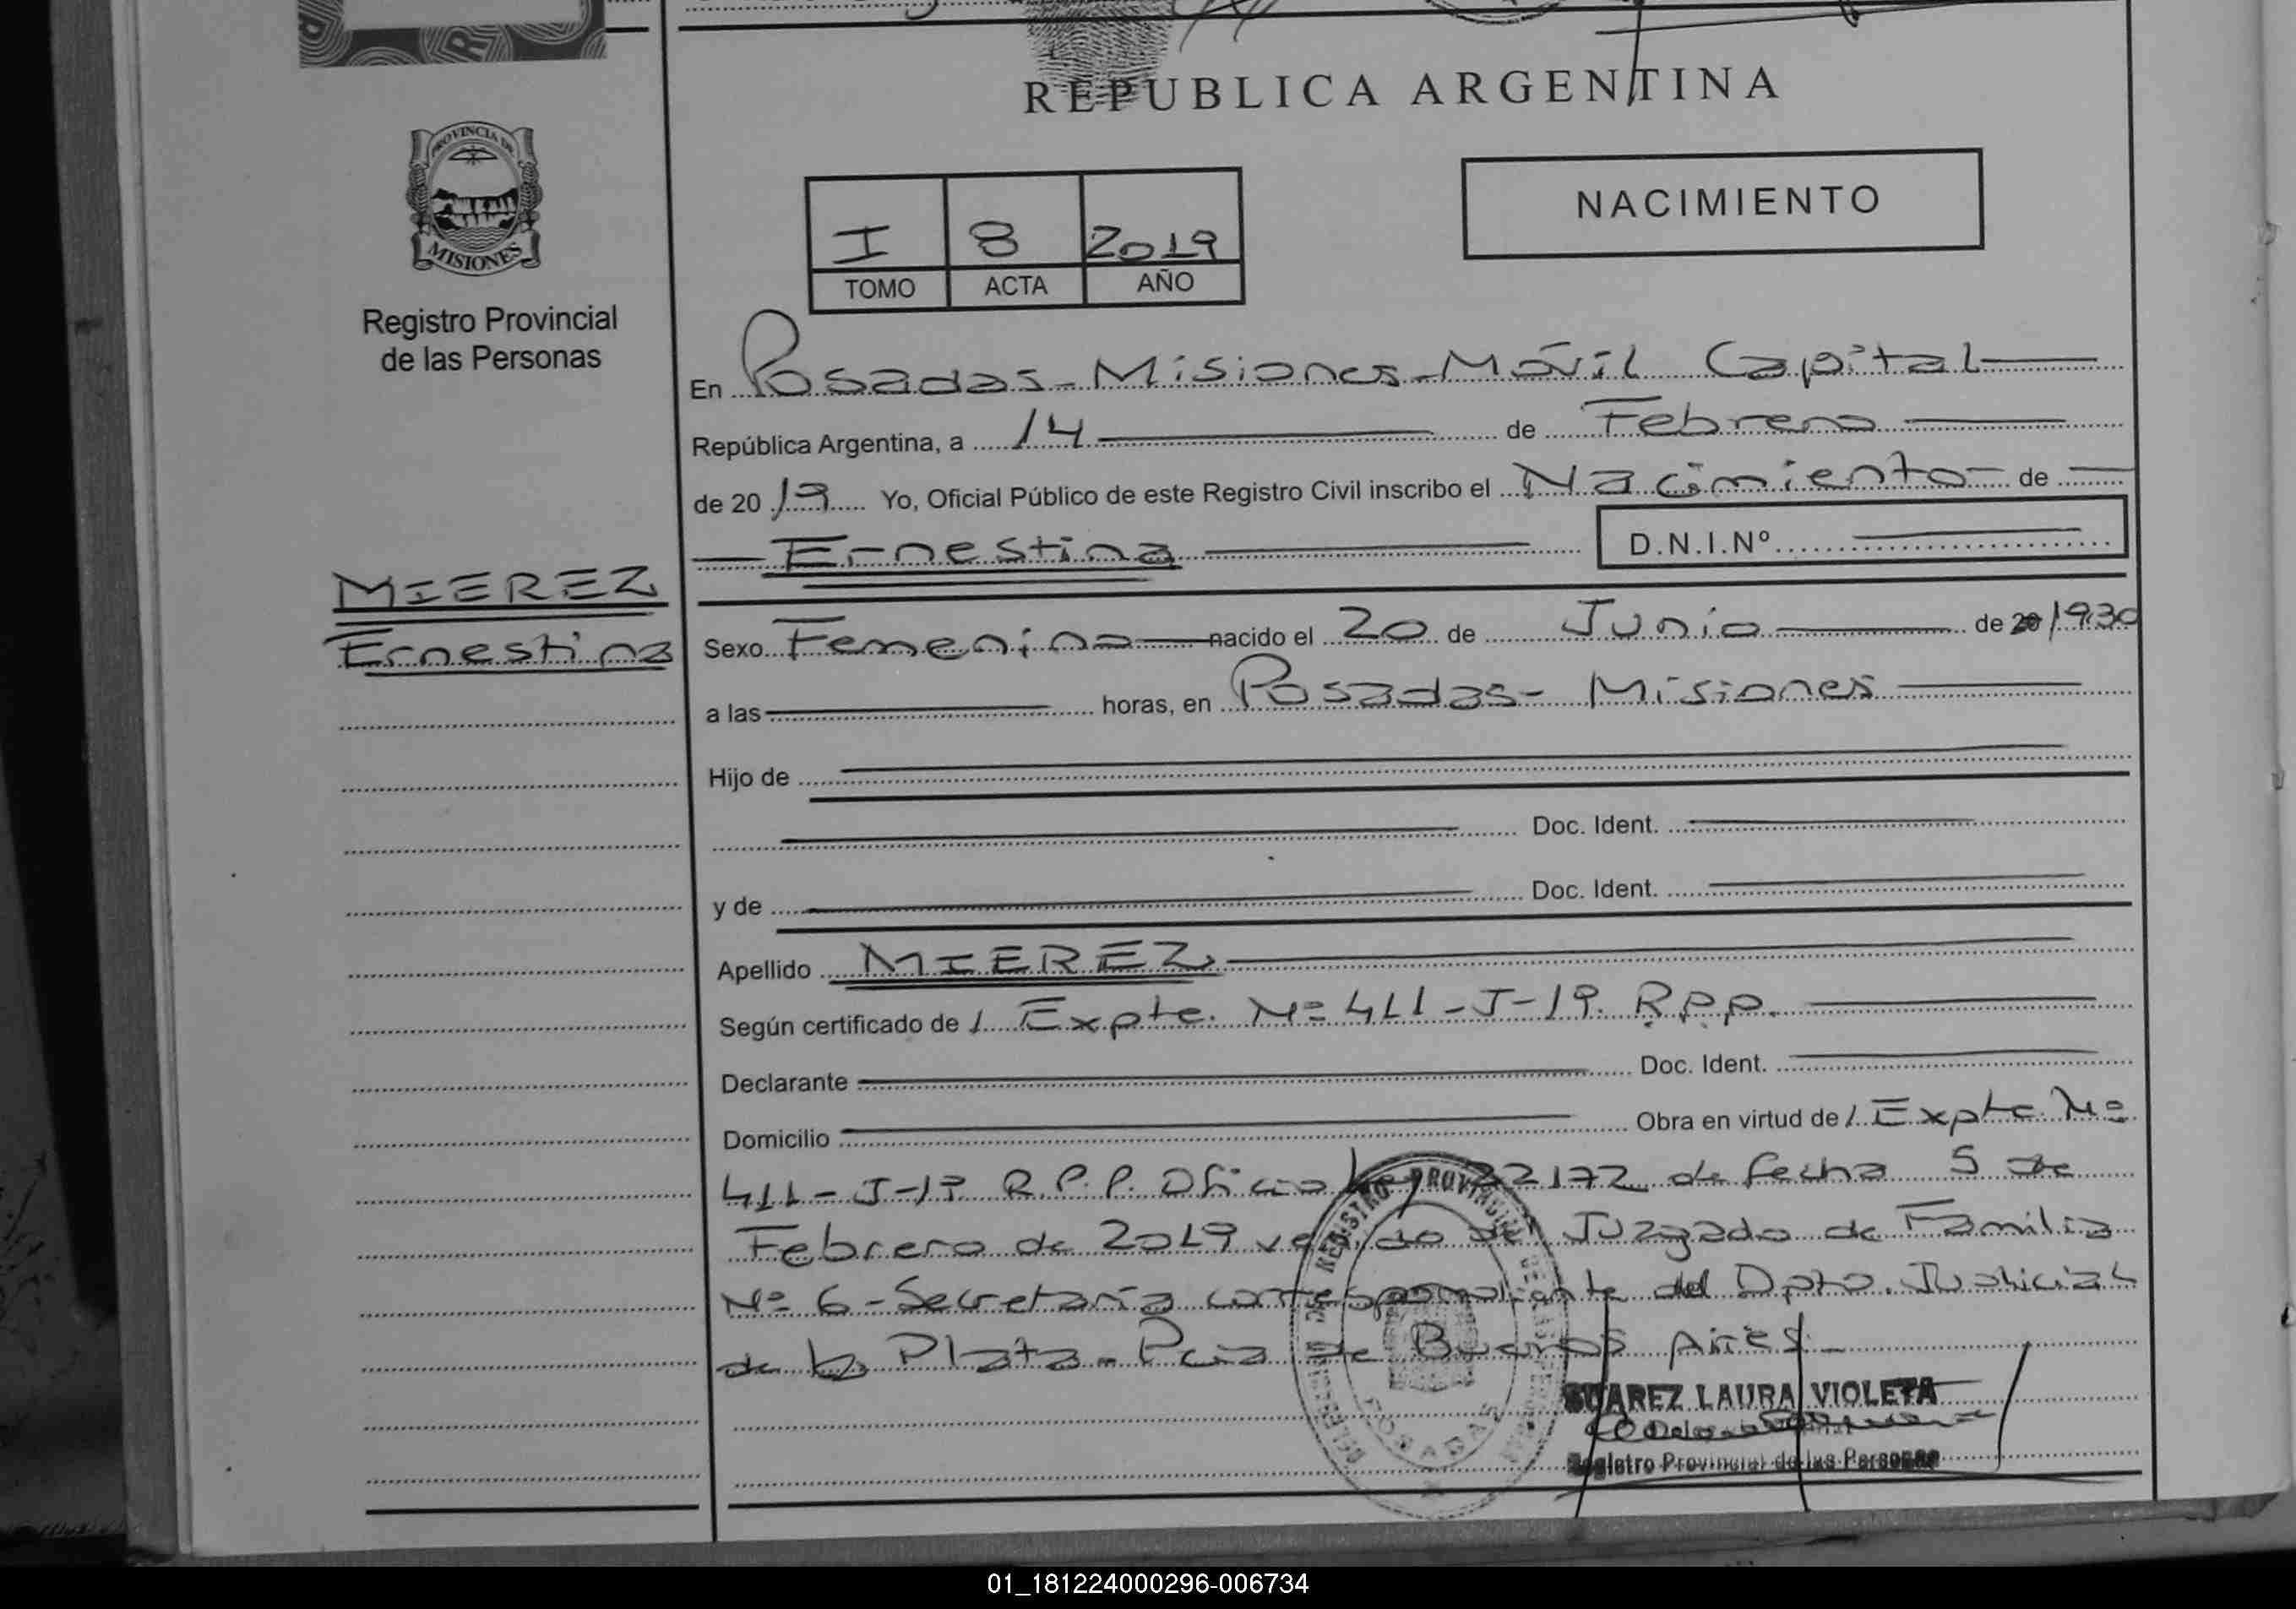 REPUBLICA ARGENTINA
PROVINCIA DE
MISIONES
Registro Provincial
de las Personas
NACIMIENTO
I 8 2019
TOMO ACTA AÑO
En Posadas - Misiones - Móvil Capital
República Argentina, a 14 de Febrero
de 20 19 Yo, Oficial Público de este Registro Civil inscribo el Nacimiento de
Ernestina D.N.I.Nº
MIEREZ
Ernestina
Sexo Femenino nacido el 20 de Junio de 20 1930
a las horas, en Posadas - Misiones
Hijo de
Doc. Ident.
y de Doc. Ident.
Apellido MIEREZ
Según certificado de / Expte. Nº 411-J-19. R.P.P.
Declarante Doc. Ident.
Domicilio Obra en virtud de / Expte. Nº
411-J-19 R.P.P. Oficio Ley 22172 de fecha 5 de
Febrero de 2019 venido del Juzgado de Familia
Nº 6 - Secretaría correspondiente del Dpto. Justicial
de la Plata - Pcia de Buenos Aires -
REGISTRO PROVINCIAL
POSADAS
SUAREZ LAURA VIOLETA
Registro Provincial de las Personas
01_181224000296-006734